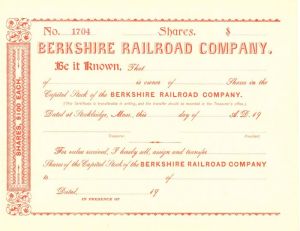 No. 1704 Shares. $
BERKSHIRE RAILROAD COMPANY.
Be it Known, That
of is owner of Shares in the
Capital Stock of the BERKSHIRE RAILROAD COMPANY.
(This Certificate is transferable in writing, and the transfer should be recorded in the Treasurer's office.)
Dated at Stockbridge, Mass., this day of A.D. 19
Treasurer. President.
For value received, I hereby sell, assign and transfer
Shares of the Capital Stock of the BERKSHIRE RAILROAD COMPANY
to of
Dated, 19
IN PRESENCE OF
SHARES, $100 EACH.